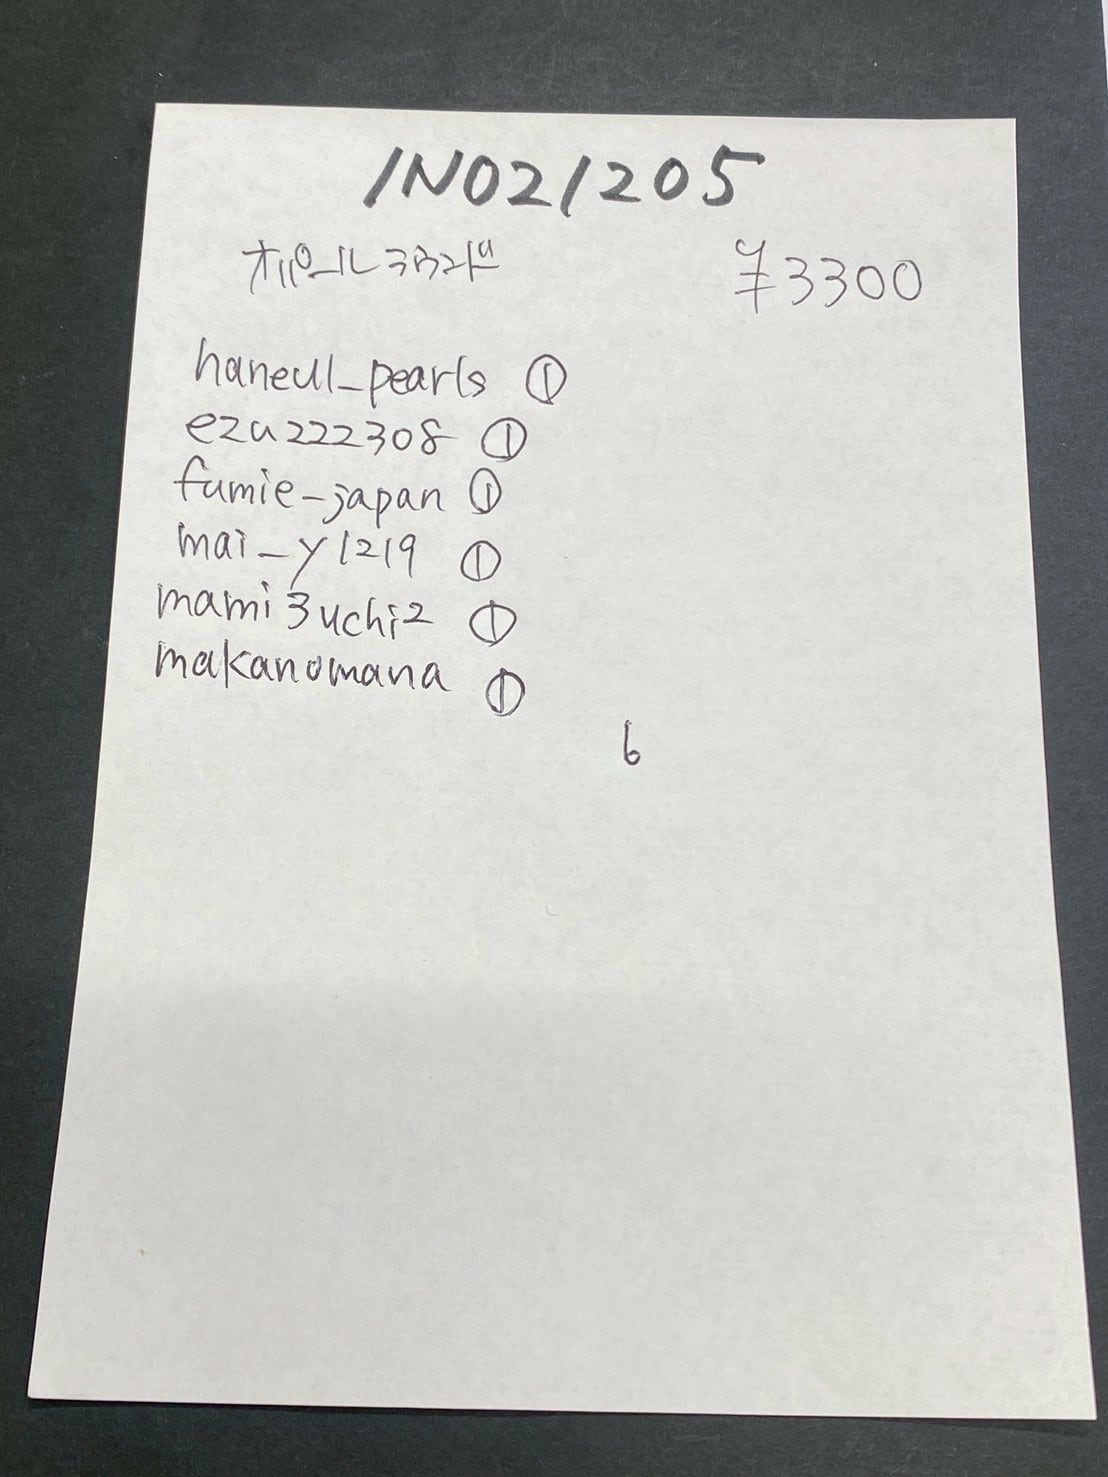 IN021205
オパールラウンド
¥3300
haneul_pearls ①
ezu222308 ①
fumie_japan ①
mai_y1219 ①
mami3uchi2 ①
makanomana ①
6